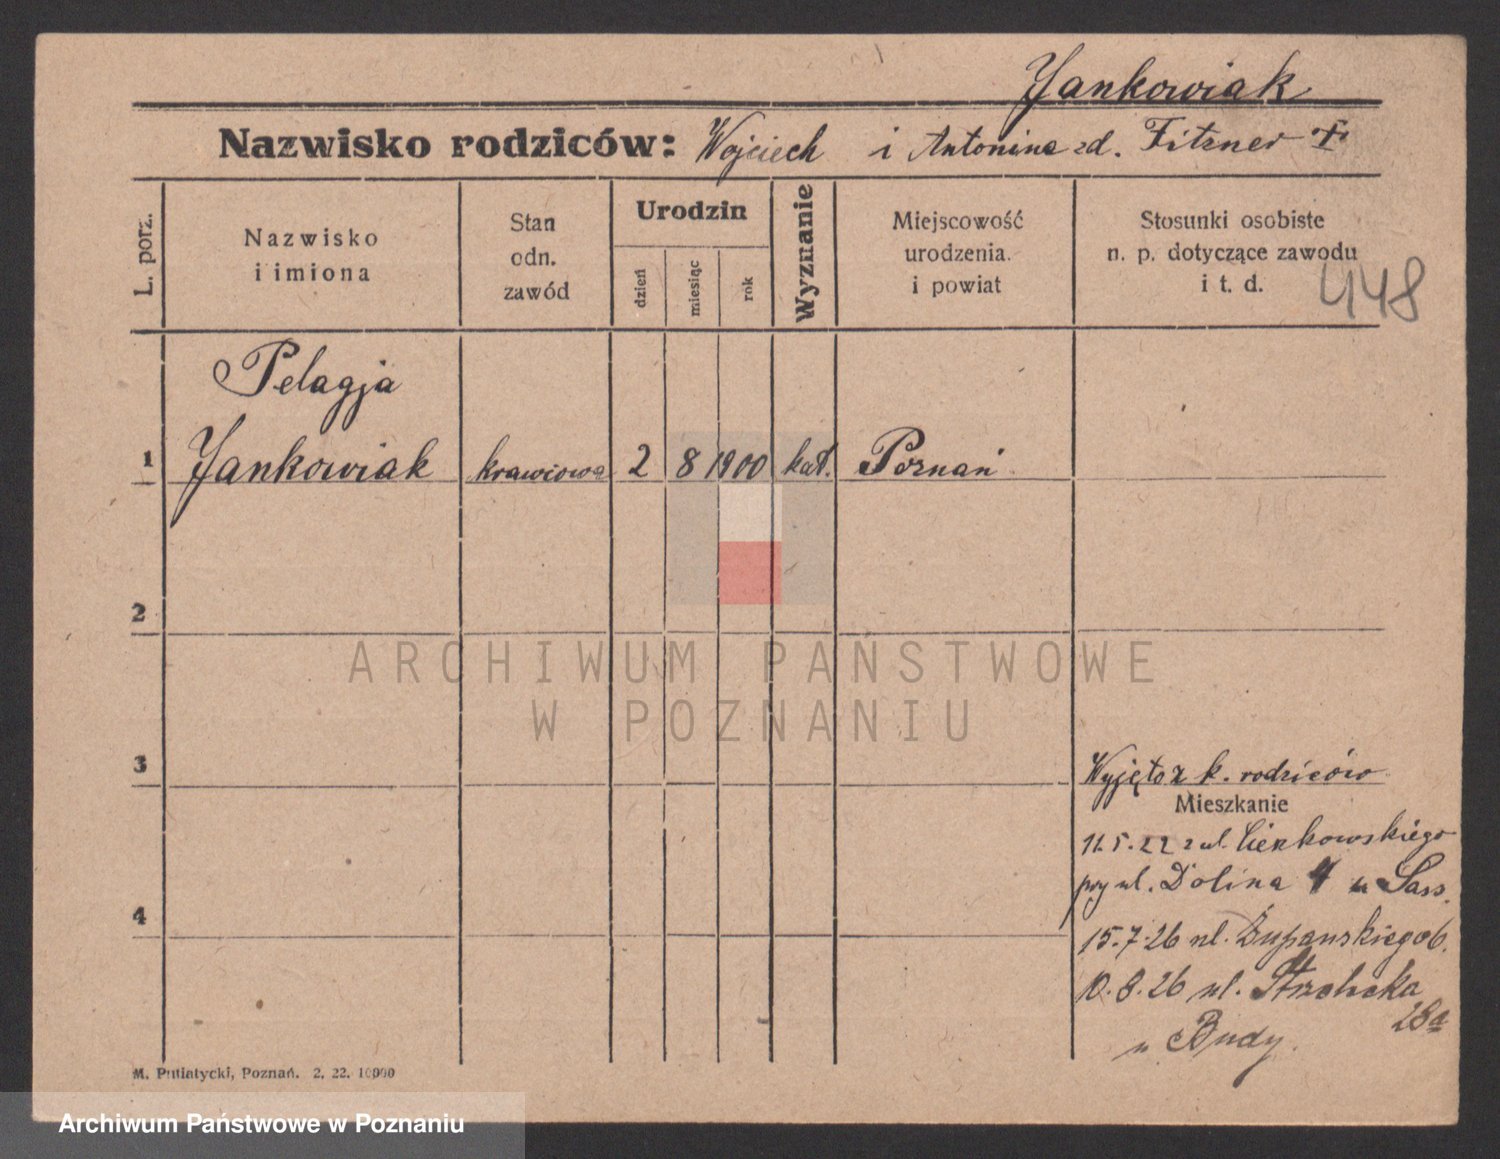 Jankowiak
Nazwisko rodziców: Wojciech i Antonina zd. Fitzner †
L. porz.
Nazwisko
i imiona
Stan
odn.
zawód
Urodzin
dzień
miesiąc
rok
Wyznanie
Miejscowość
urodzenia.
i powiat
Stosunki osobiste
n. p. dotyczące zawodu
i t. d.
448
Pelagja
1 Jankowiak krawcowa 2 8 1900 kat. Poznań
2
3
4
Wyjęto z k. rodziców
Mieszkanie
11.5.22 z ul.
ul. Dolina 4 u Sass.
15.7.26 ul. Żupańskiego 6.
10.8.26 ul.
28a
u Budy.
M. Putiatycki, Poznań. 2. 22. 10000
ARCHIWUM PAŃSTWOWE
W POZNANIU
Archiwum Państwowe w Poznaniu